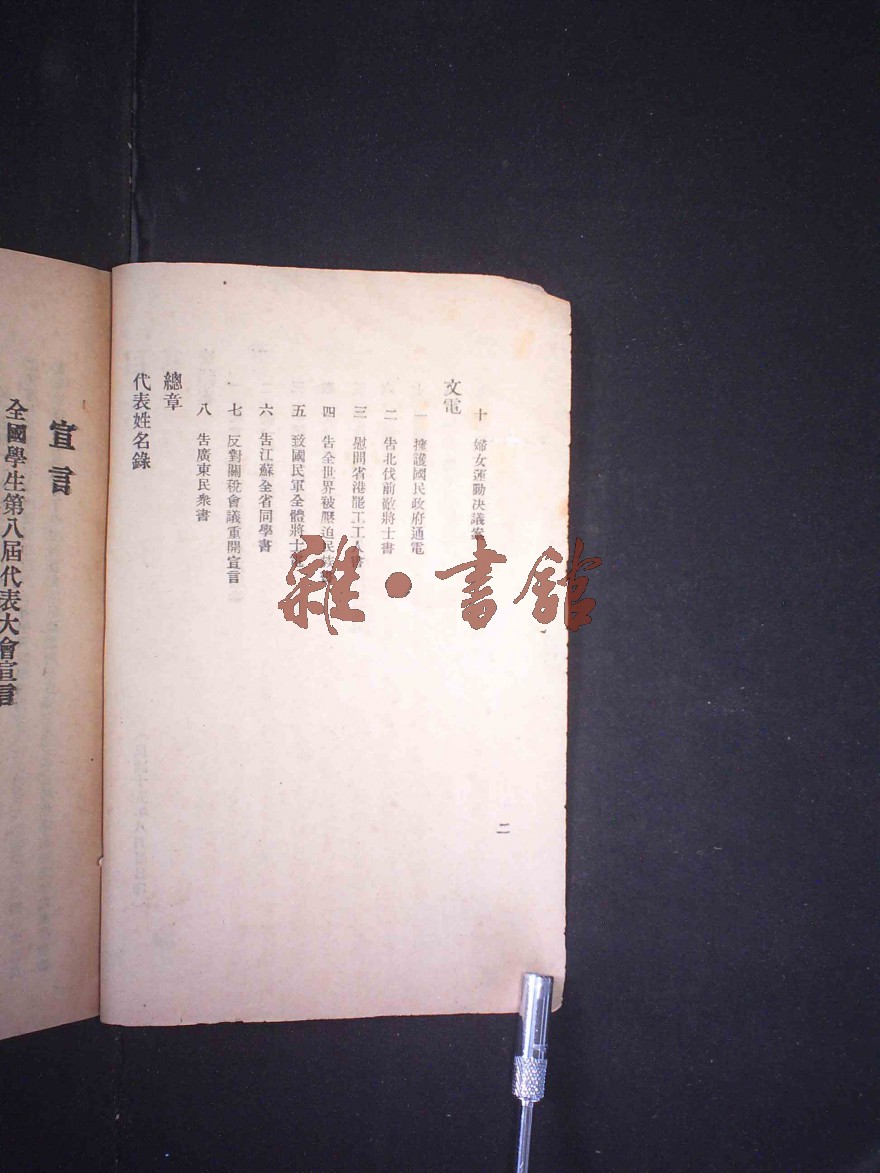 十 婦女運動決議案
文電
一 擁護國民政府通電
二 告北伐前敵將士書
三 慰問省港罷工工人書
四 告全世界被壓迫民族
五 致國民軍全體將士
六 告江蘇全省同學書
七 反對關稅會議重開宣言
八 告廣東民衆書
總章
代表姓名錄
二
宣言
全國學生第八屆代表大會宣言
雜·書館